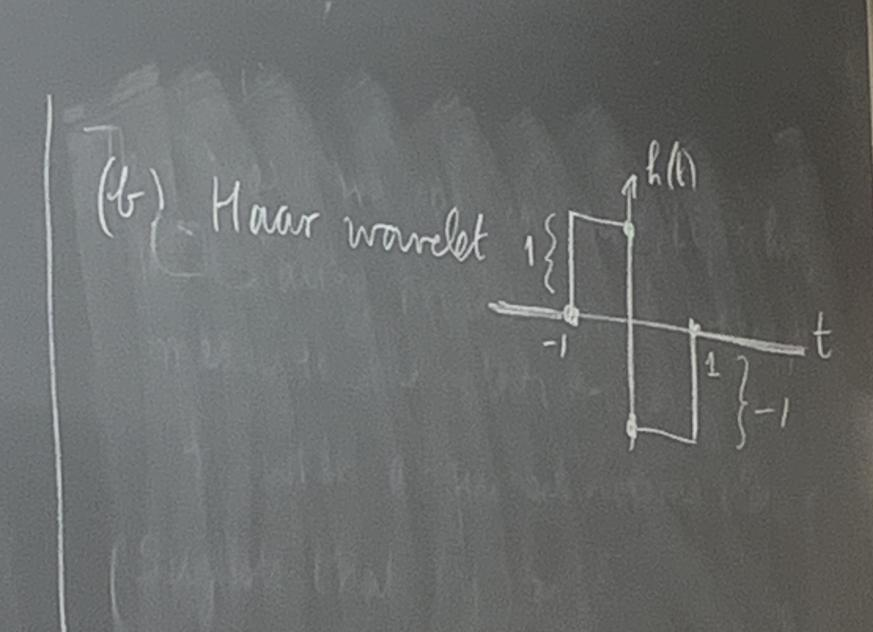 (b) Haar wavelet
h(t)
1
-1
t
1
-1